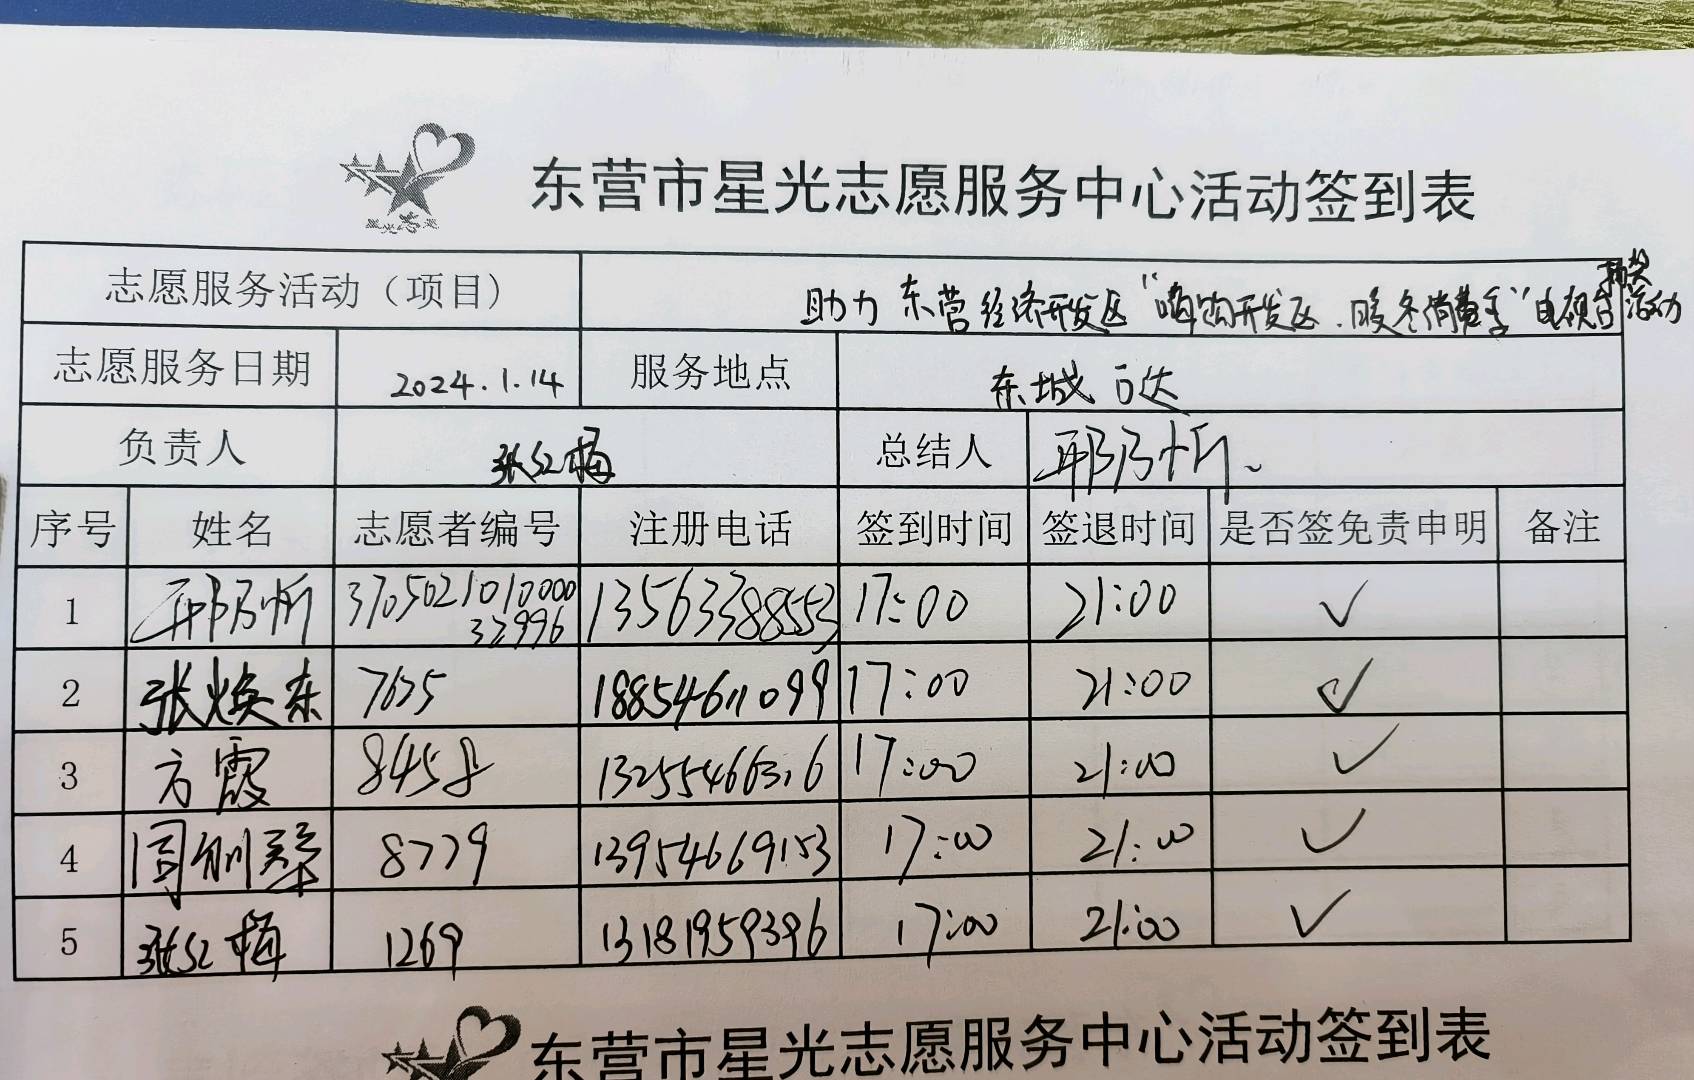 星光志愿
东营市星光志愿服务中心活动签到表
志愿服务活动（项目）
助力东营经济开发区“嗨购开发区.暖冬消费季”电视台抽奖活动
志愿服务日期 2024.1.14 服务地点 东城万达
负责人 张红梅 总结人 邢乃忻
序号 姓名 志愿者编号 注册电话 签到时间 签退时间 是否签免责申明 备注
1 邢乃忻 3705021010000 13563388553 17:00 21:00 ✓
32996
2 张焕东 7625 18854611099 17:00 21:00 ✓
3 方霞 8458 13255466316 17:00 21:00 ✓
4 周刚琴 8779 13954669153 17:00 21:00 ✓
5 张红梅 1269 13181959396 17:00 21:00 ✓
东营市星光志愿服务中心活动签到表